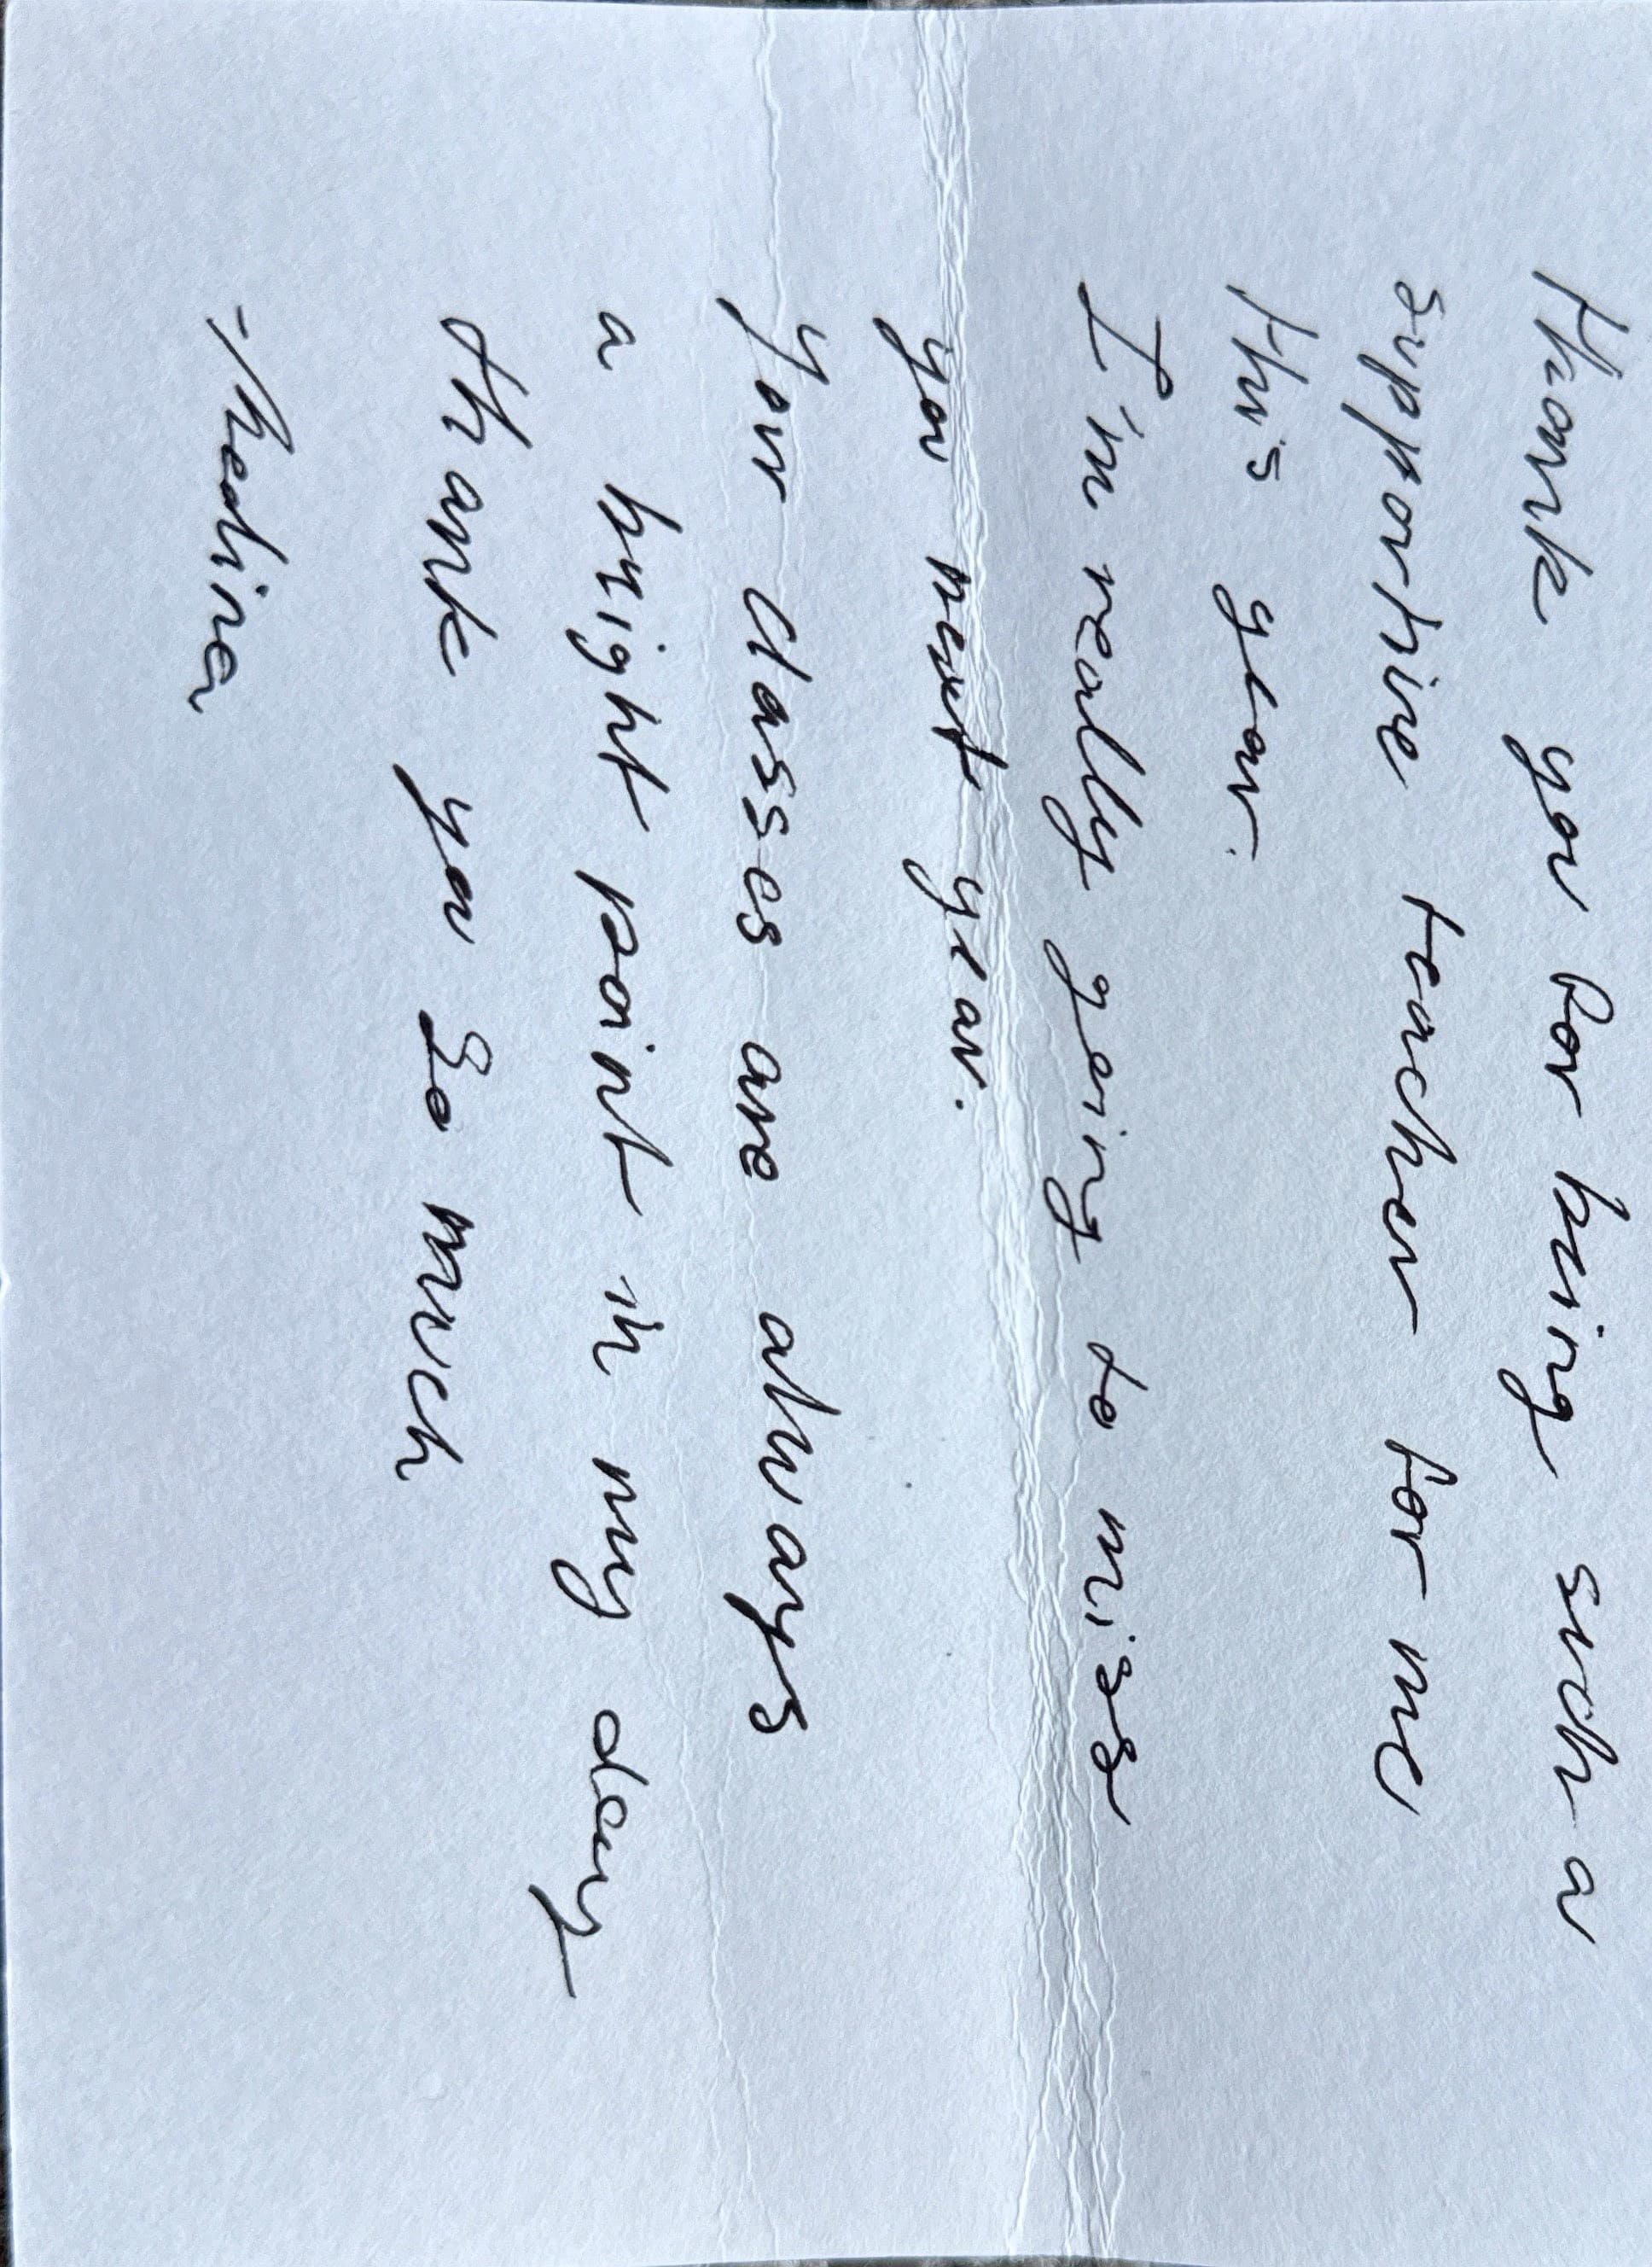 Thank you for being such a
supportive teacher for me
this year.
I'm really going to miss
you next year.
Your classes are always
a bright point in my day
thank you so much